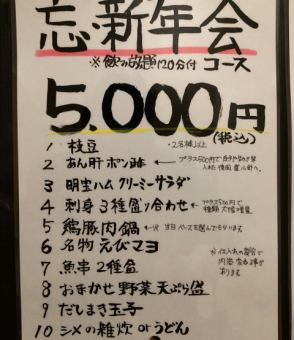 忘・新年会
※飲み放題120分付 コース
5.000円
(税込)
・2名様以上
1 枝豆
2 あん肝ポン酢
3 明宝ハムクリーミーサラダ
4 刺身3種盛り合わせ
5 鶏豚肉鍋
6 名物えびマヨ
7 魚串2種盛
8 おまかせ野菜天ぷら盛
9 だしまき玉子
10 シメの雑炊orうどん